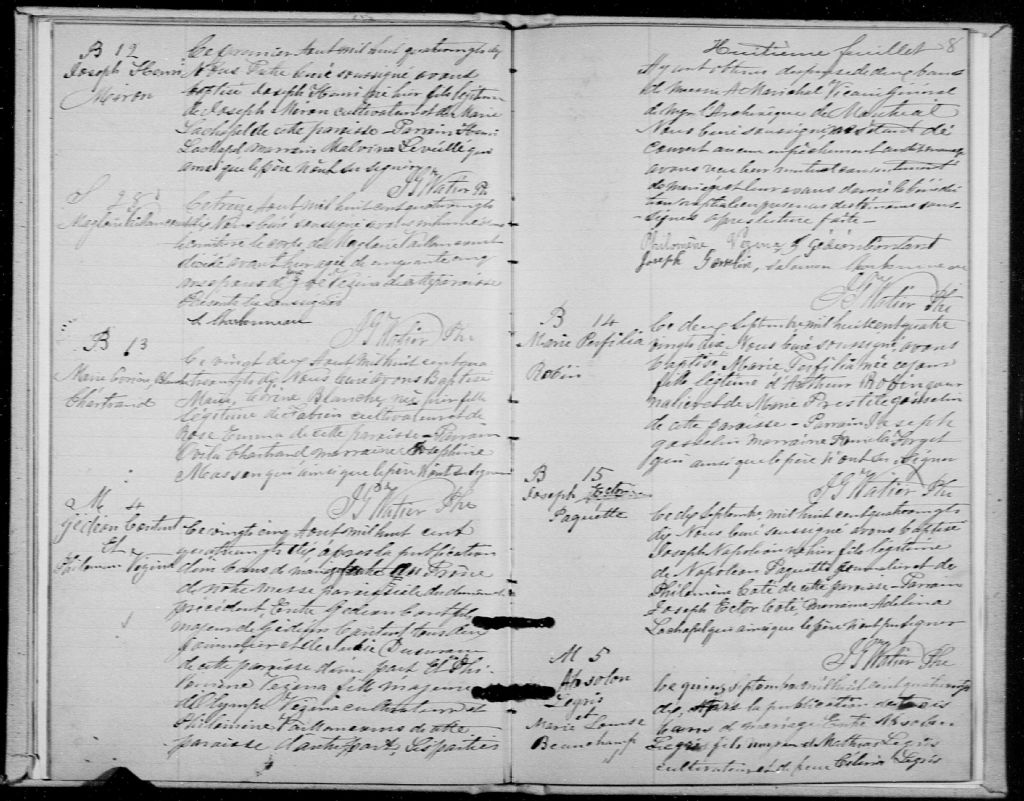 B 12
Joseph Henri
Miron
Ce premier Aout mil huit quatrevingt dix
Nous Prêtre Curé soussigné avons
baptisé Joseph Henri né hier fils légitime
de Joseph Miron cultivateur et de Marie
Lachapel de cette paroisse - Parrain Henri
Lachapel marraine Malvina Leveillé qui
ainsi que le père n'ont su signer
J G Watier Ptr
S
Ce treize Aout mil huit cent quatrevingt
dix Nous Curé soussigné avons inhumé dans
le cimetière le corps de
décédé avant hier agée de cinquante cinq
ans épouse de Vezina de cette paroisse
Présents les soussignés
Charbonneau
J G Watier Ptr
B 13
Marie Corine Blanche
Chartrand
Ce vingt deux Aout mil huit cent qua
trevingt dix Nous Curé avons Baptisé
Marie Corine Blanche née hier fille
légitime de Fabien cultivateur et de
Rose Emma de cette paroisse - Parrain
Chartrand marraine Josephine
Masson qui ainsi que le père n'ont su signer
J G Watier Ptr
M 4
Gédéon Contant
Et
Philomène Vezina
Ce vingt cinq Aout mil huit cent
quatrevingt dix après la publication
d'un bans de mariage faite au Prône
de notre messe paroissiale du dimanche
précédent Entre Gédéon Contant fils
majeur de Gédéon Contant
journalier et de Julie
de cette paroisse d'une part Et Phi
lomène Vezina fille majeure
d'Olympe Vezina cultivateur et
Philomène de cette
paroisse d'autre part Les parties
Huitième feuillet 8
Ayant obtenu dispense de deux bans
de Messire A Maréchal Vicaire Général
de Mgr l'Archevêque de Montréal
Nous Curé soussigné n'ayant dé
couvert aucun empêchement au dit mariage
avons reçu leur mutuel consentement
de mariage et leur avons donné la bénédic
tion nuptiale en présence des témoins sous-
signés après lecture faite -
Philomène Vezina Gédéon Contant
Joseph Gosselin, Salomon Charbonneau
J G Watier Ptr
B 14
Marie Porfilia
Robin
Ce deux Septembre mil huit cent quatre
vingt dix Nous Curé soussigné avons
Baptisé Marie Porfilia née ce jour
fille légitime d'Arthur Robin jour
nalier et de Marie Gosselin
de cette paroisse - Parrain Joseph
Gosselin marraine Forget
qui ainsi que le père n'ont su signer
J G Watier Ptr
B 15
Joseph Ector
Paquette
Ce dix Septembre mil huit cent quatrevingt
dix Nous Curé soussigné avons baptisé
Joseph Napoleon né hier fils légitime
de Napoleon Paquette journalier et de
Philomène Coté de cette paroisse - Parrain
Joseph Ector Coté, Marraine Adelina
Lachapel qui ainsi que le père n'ont pu signer
J G Watier Ptr
M 5
Absolon
Legris
et
Marie Louise
Beauchamp
Ce quinze septembre mil huit cent quatrevingt
dix, Après la publication de trois
bans de mariage Entre Absolon
Legris fils majeur de Mathias Legris
cultivateur et de feue Legris